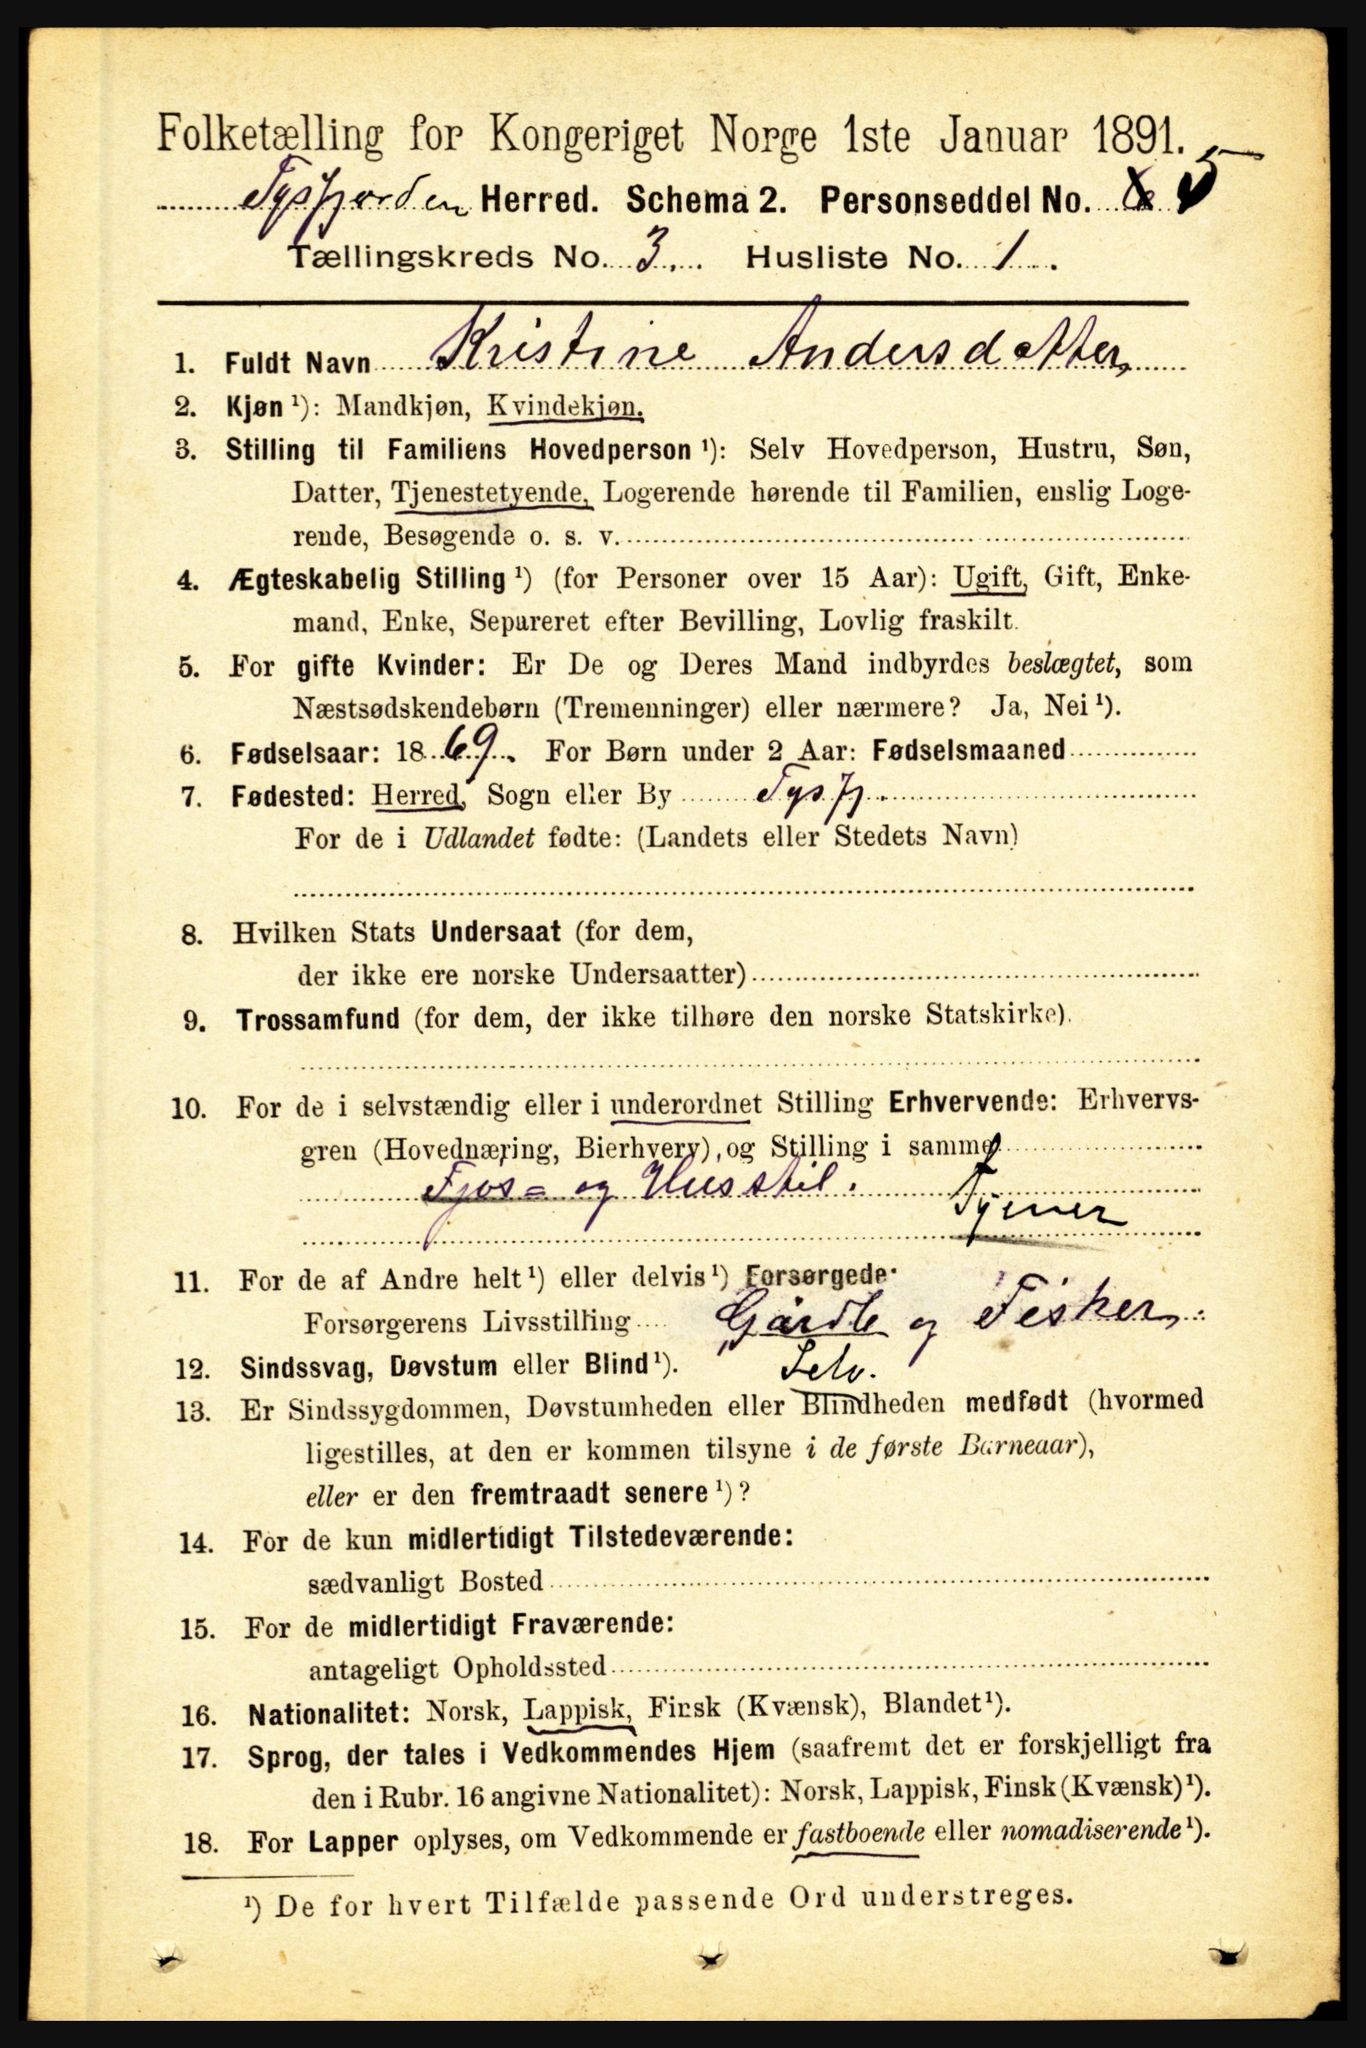 Folketælling for Kongeriget Norge 1ste Januar 1891.
Tysfjorden Herred. Schema 2. Personseddel No. 5
Tællingskreds No. 3. Husliste No. 1.
1. Fuldt Navn Kristine Andersdatter,
2. Kjøn ¹): Mandkjøn, Kvindekjøn.
3. Stilling til Familiens Hovedperson ¹): Selv Hovedperson, Hustru, Søn,
Datter, Tjenestetyende, Logerende hørende til Familien, enslig Loge-
rende, Besøgende o. s. v.
4. Ægteskabelig Stilling ¹) (for Personer over 15 Aar): Ugift, Gift, Enke-
mand, Enke, Separeret efter Bevilling, Lovlig fraskilt.
5. For gifte Kvinder: Er De og Deres Mand indbyrdes beslægtet, som
Næstsødskendebørn (Tremenninger) eller nærmere? Ja, Nei ¹).
6. Fødselsaar: 1869. For Børn under 2 Aar: Fødselsmaaned
7. Fødested: Herred, Sogn eller By Tysfj.
For de i Udlandet fødte: (Landets eller Stedets Navn)
8. Hvilken Stats Undersaat (for dem,
der ikke ere norske Undersaatter)
9. Trossamfund (for dem, der ikke tilhøre den norske Statskirke).
10. For de i selvstændig eller i underordnet Stilling Erhvervende: Erhvervs-
gren (Hovednæring, Bierhverv), og Stilling i samme
Fjøs- og Husstel. Tjener
11. For de af Andre helt ¹) eller delvis ¹) Forsørgede:
Forsørgerens Livsstilling Gårdb og Fisker,
Selv.
12. Sindssvag, Døvstum eller Blind ¹).
13. Er Sindssygdommen, Døvstumheden eller Blindheden medfødt (hvormed
ligestilles, at den er kommen tilsyne i de første Barneaar),
eller er den fremtraadt senere ¹)?
14. For de kun midlertidigt Tilstedeværende:
sædvanligt Bosted
15. For de midlertidigt Fraværende:
antageligt Opholdssted
16. Nationalitet: Norsk, Lappisk, Finsk (Kvænsk), Blandet ¹).
17. Sprog, der tales i Vedkommendes Hjem (saafremt det er forskjelligt fra
den i Rubr. 16 angivne Nationalitet): Norsk, Lappisk, Finsk (Kvænsk) ¹).
18. For Lapper oplyses, om Vedkommende er fastboende eller nomadiserende ¹).
¹) De for hvert Tilfælde passende Ord understreges.